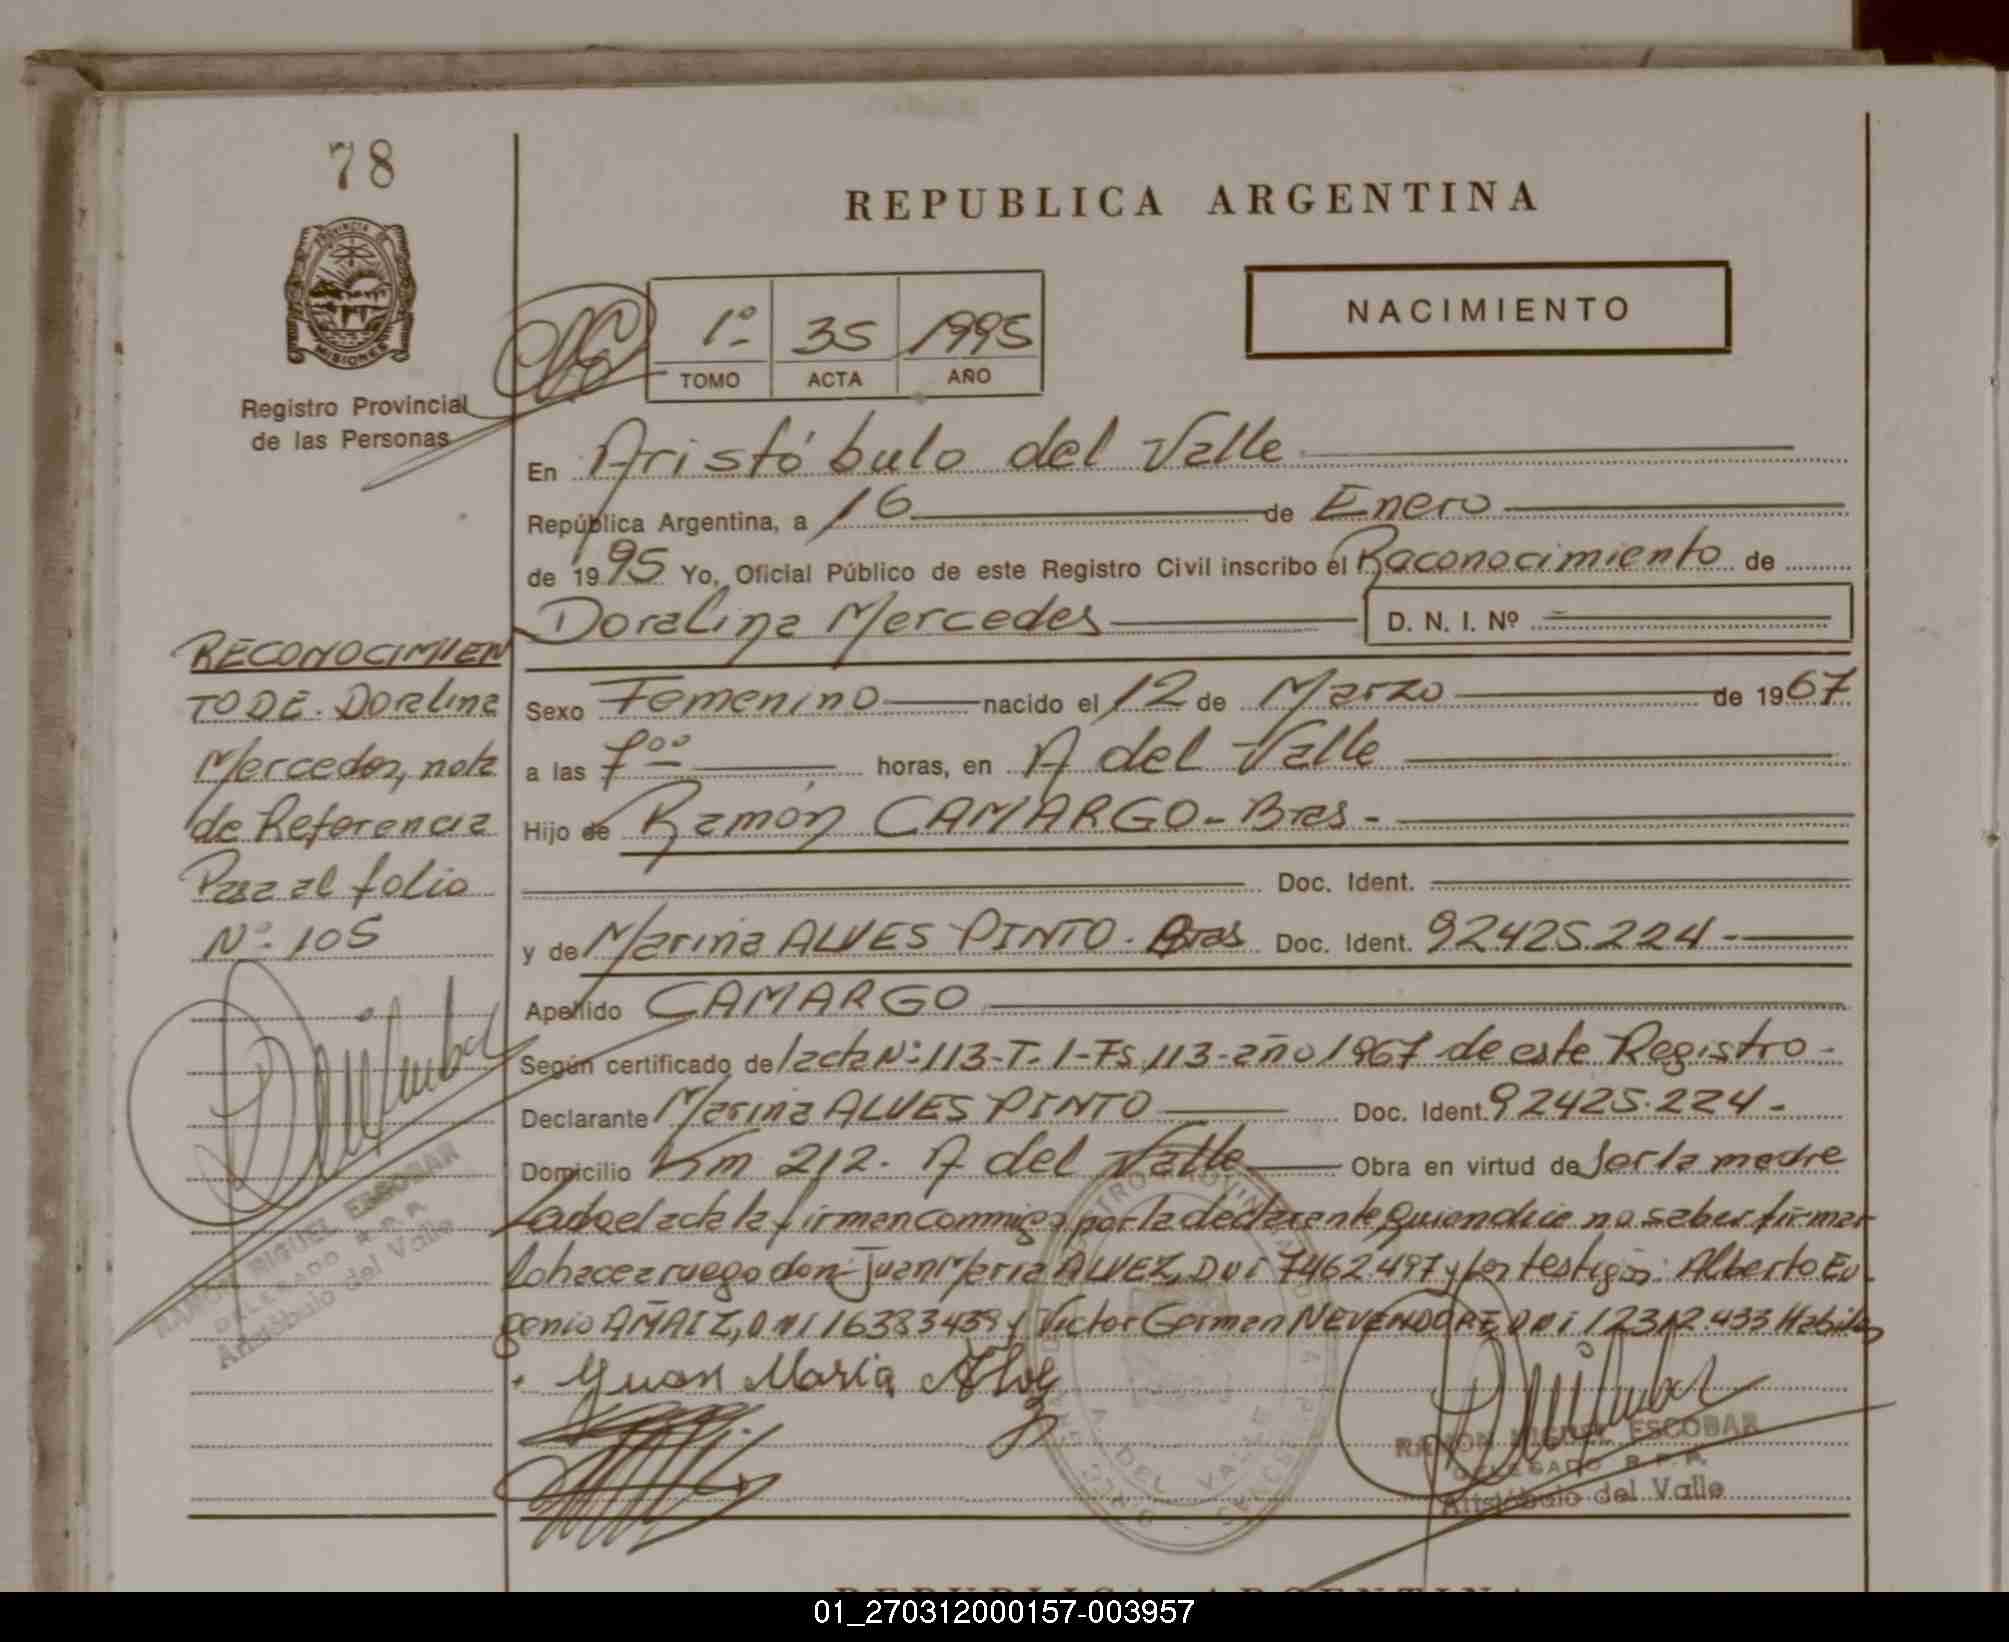 78
REPUBLICA ARGENTINA
PROVINCIA DE
MISIONES
NACIMIENTO
1º 35 1995
TOMO ACTA AÑO
Registro Provincial
de las Personas
En Aristóbulo del Valle
República Argentina, a 16 de Enero
de 1995 Yo, Oficial Público de este Registro Civil inscribo el Raconocimiento de
Doralina Mercedes D. N. I. Nº
RECONOCIMIEN
TO DE. Doralina
Mercedes, nota
de Referencia
Pasa al folio
Nº. 105
Sexo Femenino nacido el 12 de Marzo de 1967
a las 7 00 horas, en A del Valle
Hijo de Ramón CAMARGO - Bras -
Doc. Ident.
y de Marina ALVES PINTO - Bras Doc. Ident. 92425.224 -
Apellido CAMARGO
Según certificado de acta Nº 113-T-1-Fs 113-año 1967 de este Registro -
Declarante Marina ALVES PINTO Doc. Ident. 92425.224 -
Domicilio Km 212. A del Valle Obra en virtud de ser la madre
acta la firman conmigo, por la declarante, quien dice no saber firmar
lo hace a ruego don Juan Maria ALVEZ, DNI 7462.497 y los testigos: Alberto Eu-
genio DNI 16383439 y Victor German DNI Habiles
Juan Maria
RAMON MIGUEL ESCOBAR
DELEGADO R.P.P.
Aristóbulo del Valle
RAMON MIGUEL ESCOBAR
DELEGADO R.P.P.
Aristóbulo del Valle
A. DEL VALLE
REPUBLICA ARGENTINA
01_270312000157-003957